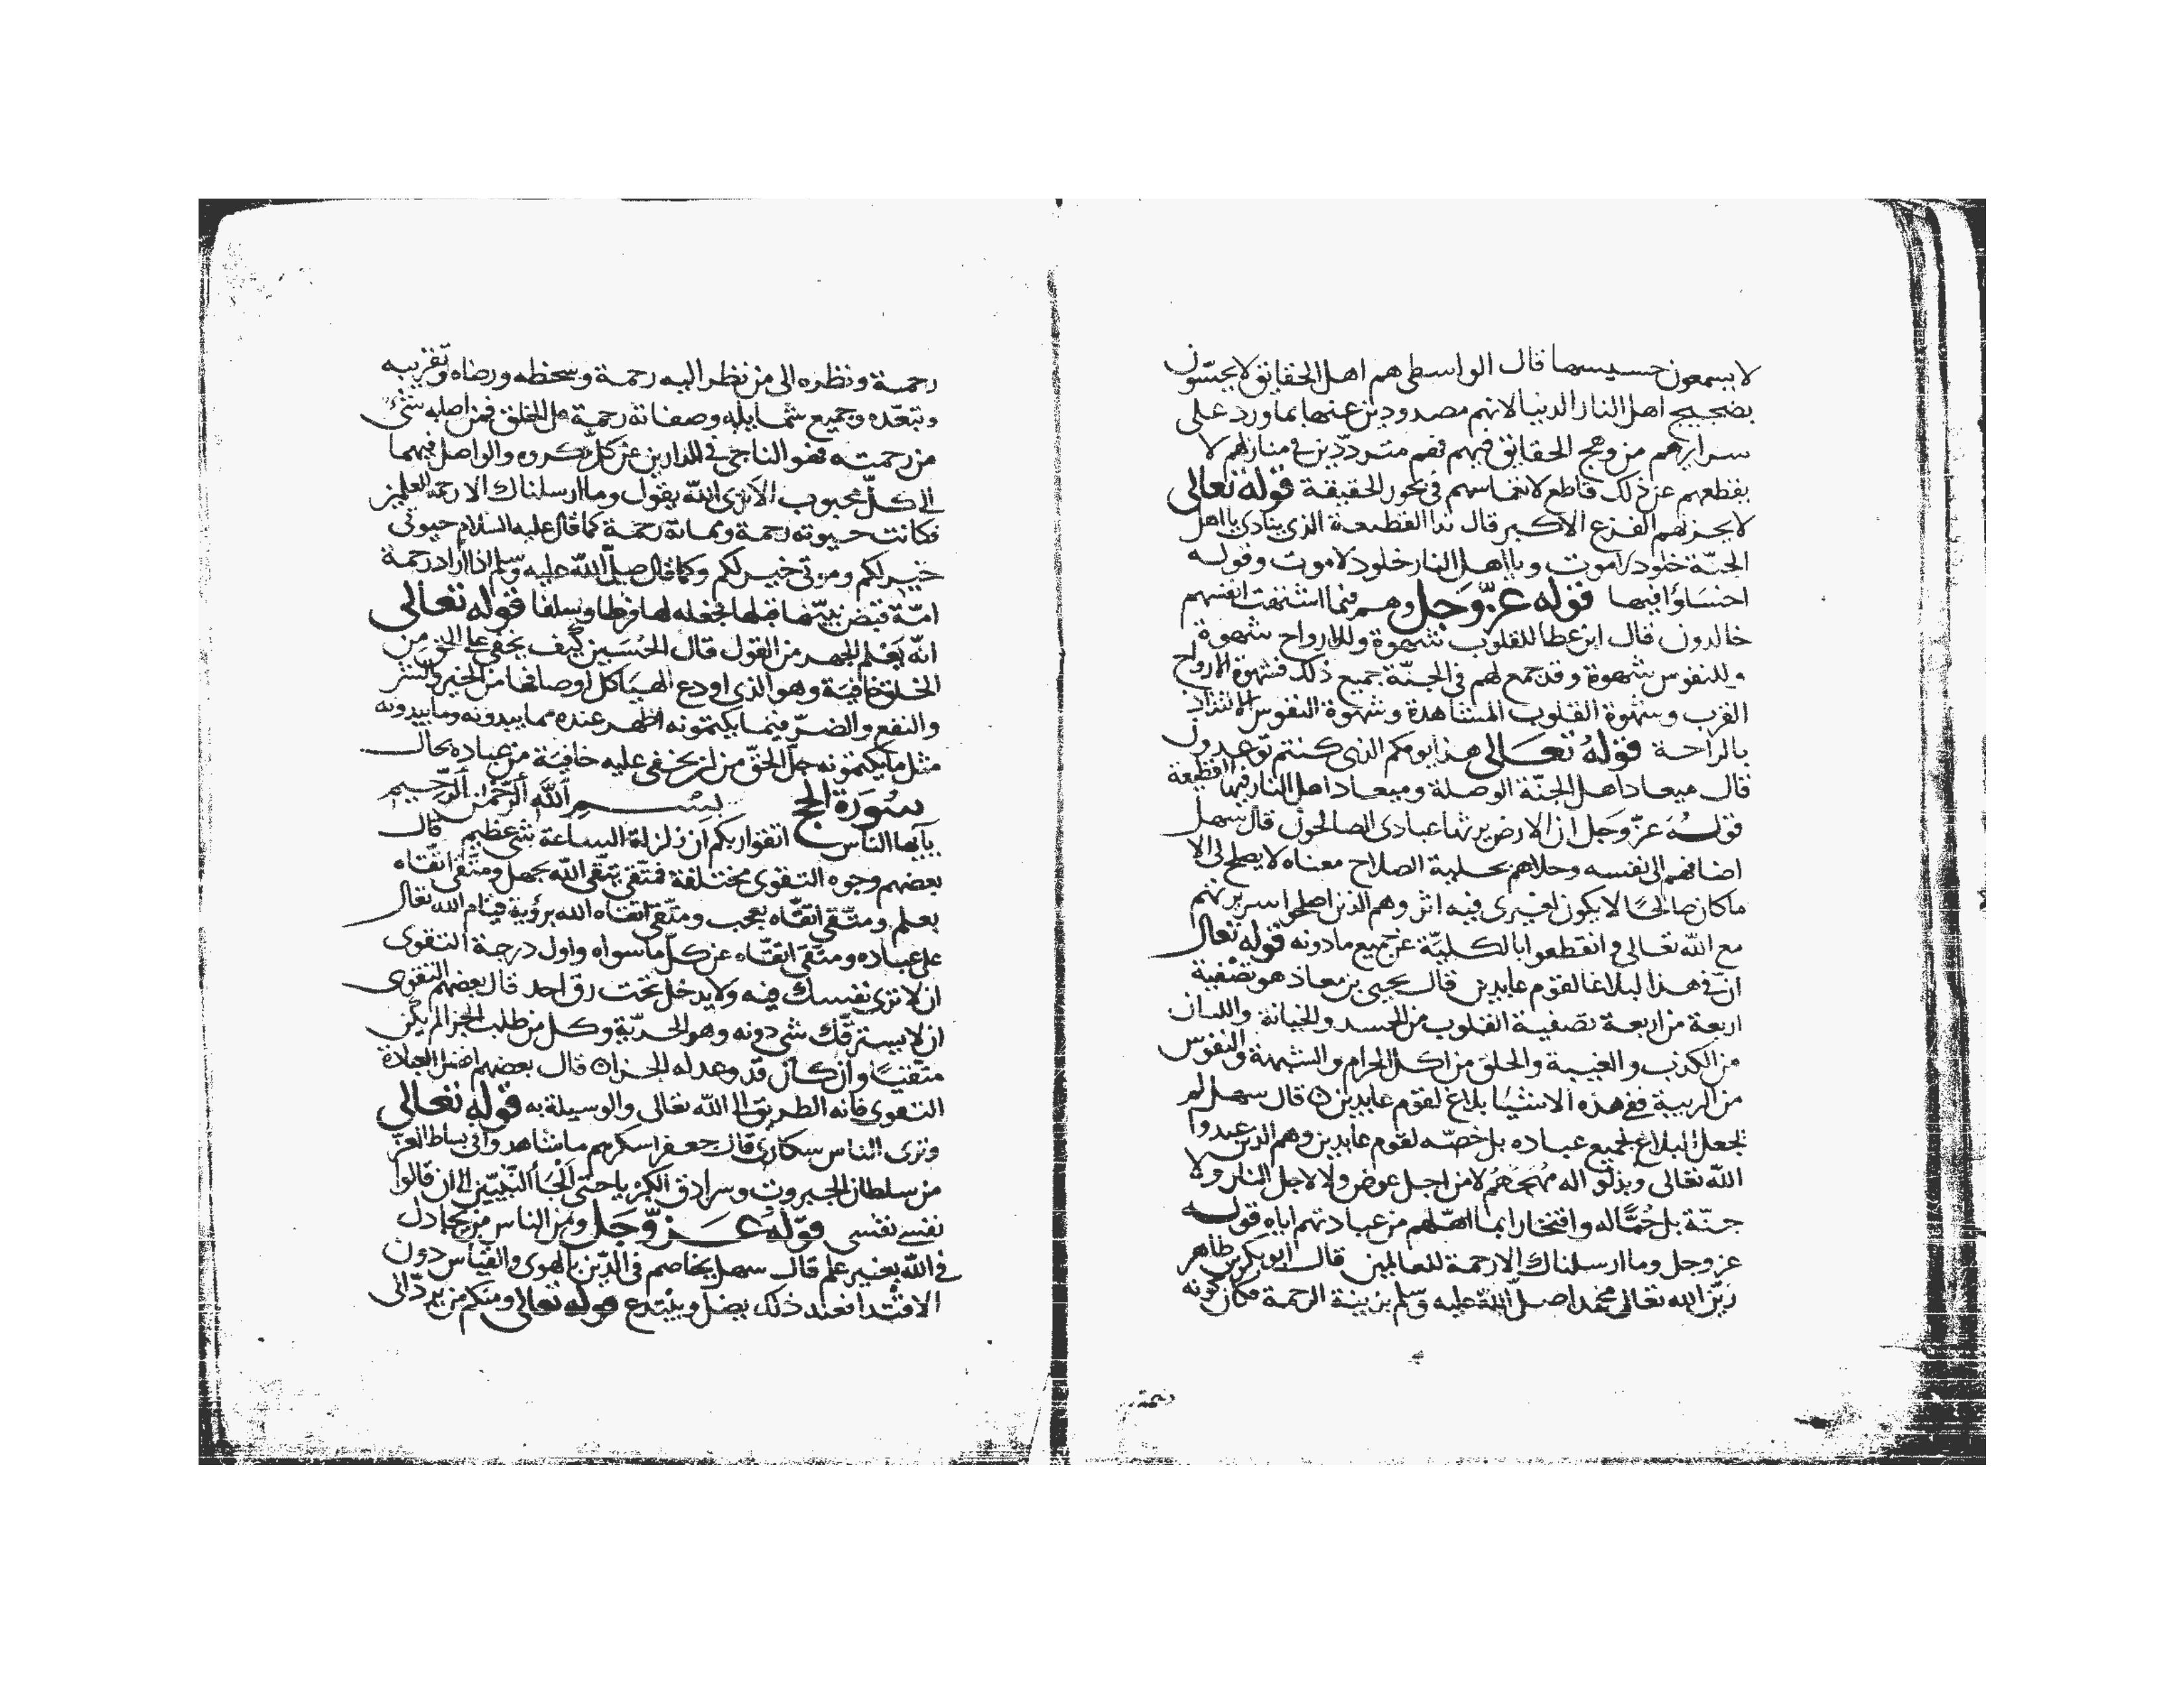 لا يسمعون حسيسها قال الواسطى هم اهل الحقايق لا يحسّون
بضجيج اهل النار الدنيا لانهم مصدودين عنها بما ورد على
سرايرهم من وهج الحقايق فيهم فهم متردّدين فى منازلهم لا
يقطعهم عن ذلك قاطع لانغماسهم فى بحور الحقيقة قوله تعالى
لا يحزنهم الفزع الاكبر قال ندا القطيعة الذى ينادى يا اهل
الجنّة خلود لا موت ويا اهل النار خلود لا موت وقوله
اخسَاؤا فيها قوله عزّ وَجل وهم فيما اشتهت انفسهم
خالدون قال ابن عطا للقلوب شهوة وللارواح شهوة
وللنفوس شهوة وقد جمع لهم فى الجنّة جميع ذلك فشهوة الارواح
القرب وشهوة القلوب المشاهدة وشهوة النفوس الالتذاذ
بالراحة قوله تعالى هذا يومكم الذى كنتم توعدون
قال ميعاد اهل الجنّة الوصلة وميعاد اهل النار فيها القطيعة
قوله عزّ وجل ان الارض يرثها عبادى الصالحون قال سهل
اضافهم الى نفسه وحلاهم بحلية الصلاح معناه لا يصلح لى الا
ما كان صالحًا لا يكون لغيرى فيه اثر وهم الذين اصلحوا سريرتهم
مع الله تعالى وانقطعوا بالكليّة عن جميع ما دونه قوله تعالى
انّ فى هذا لبلاغا لقوم عابدين قال يحيى بن معاذ هو تصفية
اربعة من اربعة تصفية القلوب من الحسد والخيانة واللسان
من الكذب والغيبة والحلق من اكل الحرام والشبهة والنفوس
من الريبة ففى هذه الاشيا بلاغ لقوم عابدين قال سهل لم
تجعل البلاغ لجميع عباده بل خصّه لقوم عابدين وهم الذين عبدوا
الله تعالى وبذلوا له مُهَجهُم لا من اجل عوض ولا لاجل النار ولا
جنّة بل حُبًّا له وافتخارا بما اهّلهم من عبادتهم اياه قوله
عز وجل وما ارسلناك الا رحمة للعالمين قال ابو بكر بن طاهر
زيّن الله تعالى محمدا صلى الله عليه وسلم بزينة الرحمة فكان كونه
رحمة
رحمة ونظره الى من نظر اليه رحمة وسخطه ورضاه وتقريبه
وتبعّده وجميع شمايله وصفاته رحمة على الخلق فمن اصابه شئ
من رحمته فهو الناجى فى الدارين عن كلّ مكروه والواصل فيهما
الى كلّ محبوب الا ترى الله يقول وما ارسلناك الا رحمة للعلمين
فكانت حيوته رحمة ومماته رحمة كما قال عليه السلام حيوتى
خير لكم وموتى خير لكم وكما قال صلى الله عليه وسلم اذا اراد رحمة
امّة قبض نبيّها قبلها فجعله لها فرطا وسلفا قوله تعالى
انّه يَعْلم الجهر من القول قال الحُسَين كيف يخفى على الحق من
الخلق خافية وهو الذى اودع الهياكل اوصافها من الخير والشر
والنفع والضرّ فيما يكتمونه اظهر عنده مما يبدونه وما يبدونه
مثل ما يكتمونه جل الحقّ من ان يخفى عليه خافية من عباده بحال
سُورة الحج بسم الله الرحمن الرحيم
يآيها الناس اتقوا ربكم ان زلزلة الساعة شئ عظيم قال
بعضهم وجوه التقوى مختلفة فمتّقى يتّقى الله بجهل ومتّقى اتّقاه
بعلم ومتّقى اتّقاه بعجب ومتّقى اتقاه الله برؤية قيام الله تعالى
على عباده ومتّقى اتّقاه عن كلّ ما سواه واول درجة التقوى
ان لا ترى نفسك فيه ولا يدخل تحت رق احد قال بعضهم التقوى
ان لا يسترقّك شى دونه وهو الحرّية وكل من طلب الجزا لم يكن
متّقيًا وان كان قد وعد له الجزا قال بعضهم افضل العبادة
التقوى فانه الطريق الى الله تعالى والوسيلة به قوله تعالى
وترى الناس سكارى قال جعفر اسكرهم ما شاهدوا فى بساط العزّ
من سلطان الجبروت وسرادق الكبريا حتى الجَأ النّبيّين الى ان قالوا
نفسى نفسى قوله عزّ وَجَل ومن الناس من يجادل
فى الله بغير علم قال سهل يخاصم فى الدّين بالهوى والقياس دون
الاقتدا فعند ذلك يضل ويبتدع قوله تعالى ومنكم من يردّ الى